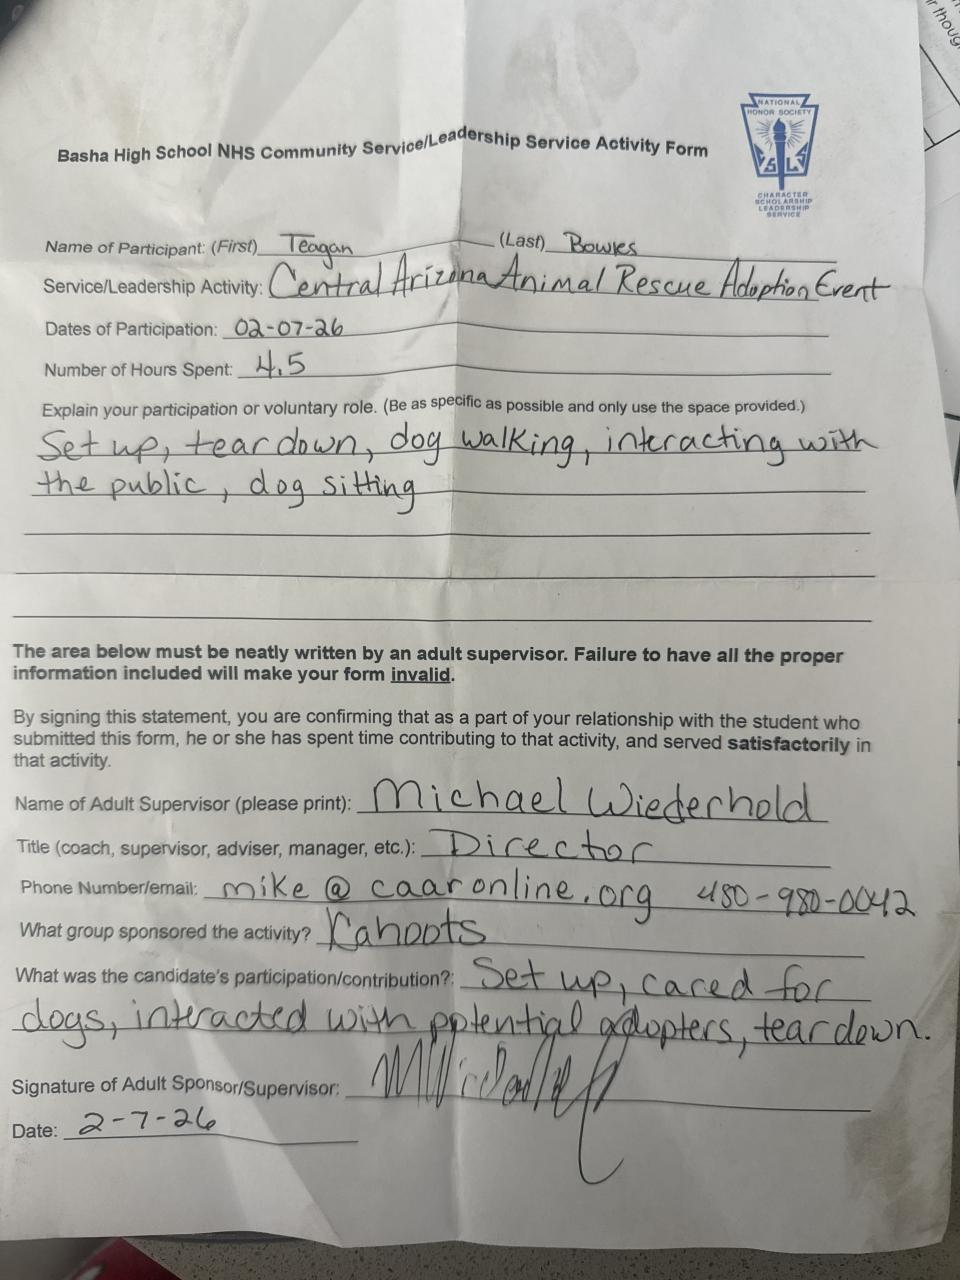 NATIONAL
HONOR SOCIETY
S L S
CHARACTER
SCHOLARSHIP
LEADERSHIP
SERVICE
Basha High School NHS Community Service/Leadership Service Activity Form
Name of Participant: (First) Teagan (Last) Bowes
Service/Leadership Activity: Central Arizona Animal Rescue Adoption Event
Dates of Participation: 02-07-26
Number of Hours Spent: 4.5
Explain your participation or voluntary role. (Be as specific as possible and only use the space provided.)
Set up, tear down, dog walking, interacting with
the public, dog sitting
The area below must be neatly written by an adult supervisor. Failure to have all the proper
information included will make your form invalid.
By signing this statement, you are confirming that as a part of your relationship with the student who
submitted this form, he or she has spent time contributing to that activity, and served satisfactorily in
that activity.
Name of Adult Supervisor (please print): Michael Wiederhold
Title (coach, supervisor, adviser, manager, etc.): Director
Phone Number/email: mike@caaronline.org 480-980-0042
What group sponsored the activity? Kahoots
What was the candidate's participation/contribution?: Set up, cared for
dogs, interacted with potential adopters, tear down.
Signature of Adult Sponsor/Supervisor:
Date: 2-7-26